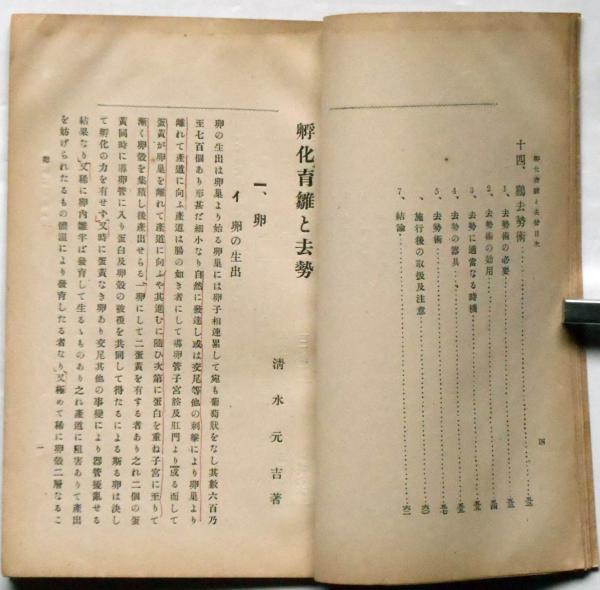 孵化育雛と去勢目次
十四、鶏去勢術
1、去勢術の必要
2、去勢術の効用
3、去勢に適當なる時機
4、去勢の器具
5、去勢術
6、施行後の取扱及注意
7、結論
四
孵化育雛と去勢
清水元吉著
一、卵
イ 卵の生出
卵の生出は卵巢より始る卵巢には卵子相連累して宛も葡萄狀をなし其數六百乃
至七百個あり形甚だ細小なり自然に發達し或は交尾等他の刺擊により卵巢より
離れて產道に向ふ產道は腸の如き者にして導卵管子宮腔及肛門より或る而して
蛋黃が卵巢を離れて產道に向ふや其進むに隨ひ次第に蛋白を重ね子宮に至りて
漸く卵殼を集積し後產出せらる一卵にして二蛋黃を有する者あり之れ二個の蛋
黃同時に導卵管に入り蛋白及卵殼の被覆を共同して得たるによる斯る卵は決し
て孵化の力を有せず又時に蛋黃なき卵あり交尾其他の事變により器管擾亂せる
結果なり又稀に卵內雛半ば發育して生るゝものあり之れ產道に阻害ありて產出
を妨げられたるもの體溫により發育したる者なり又極めて稀に卵殼二層なるこ
一